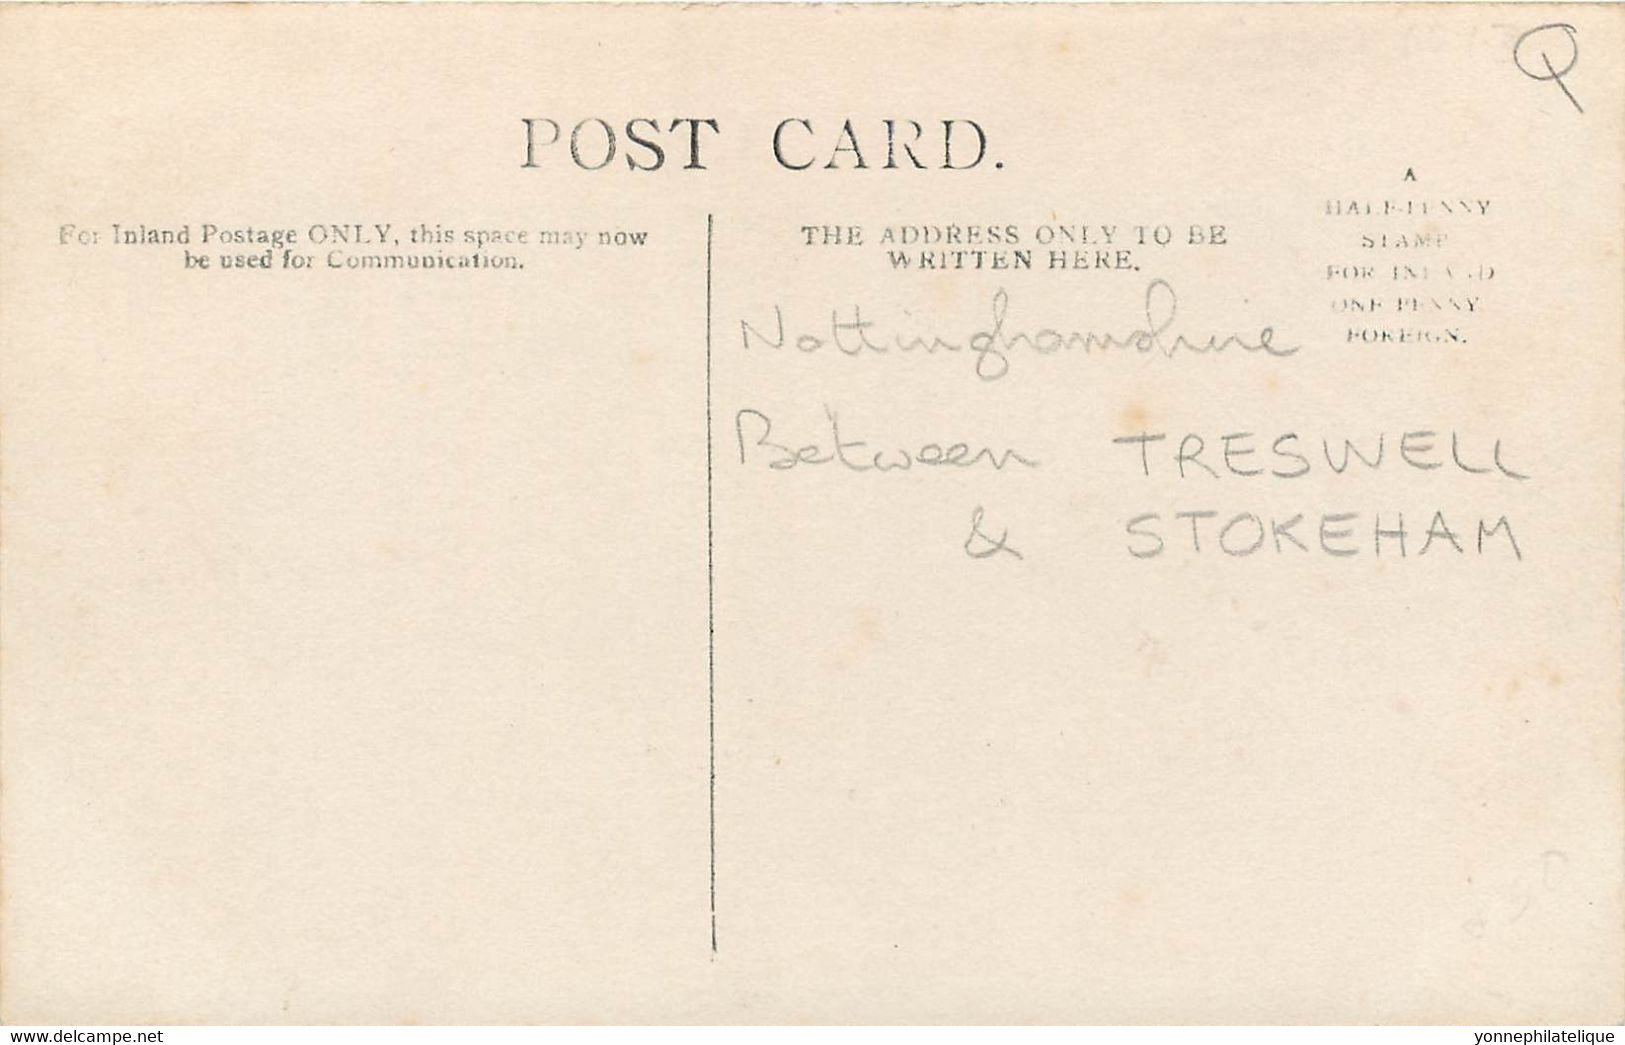 Q
POST CARD.
For Inland Postage ONLY, this space may now
be used for Communication.
THE ADDRESS ONLY TO BE
WRITTEN HERE.
A
HALF-PENNY
STAMP
FOR INLAND
ONE PENNY
FOREIGN.
Nottinghamshire
Between TRESWELL
& STOKEHAM
www.delcampe.net
yonnephilatelique